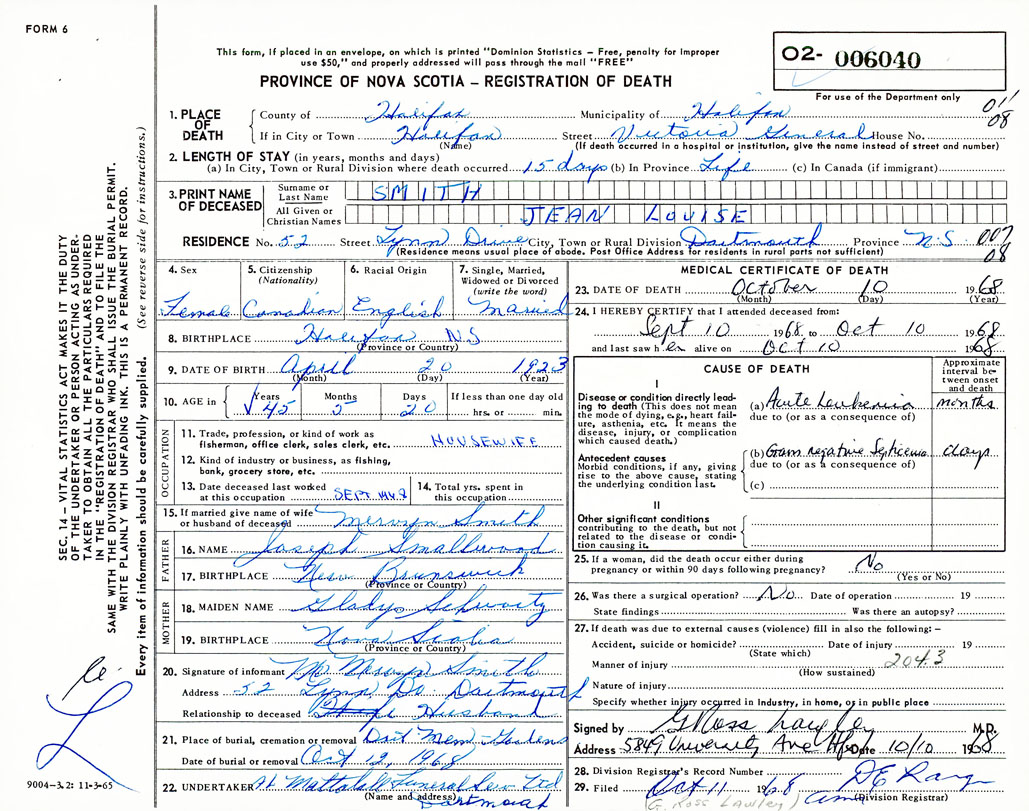 FORM 6
This form, if placed in an envelope, on which is printed "Dominion Statistics – Free, penalty for improper
use $50," and properly addressed will pass through the mail "FREE"
O2- 006040
PROVINCE OF NOVA SCOTIA – REGISTRATION OF DEATH
For use of the Department only
011
08
1. PLACE OF DEATH County of Halifax Municipality of Halifax
If in City or Town Halifax Street Victoria General House No.
(Name) (If death occurred in a hospital or institution, give the name instead of street and number)
2. LENGTH OF STAY (in years, months and days)
(a) In City, Town or Rural Division where death occurred 15 days (b) In Province Life (c) In Canada (if immigrant)
3. PRINT NAME OF DECEASED Surname or Last Name SMITH
All Given or Christian Names JEAN LOUISE
RESIDENCE No. 52 Street Lynn Drive City, Town or Rural Division Dartmouth Province N.S. 007
08
(Residence means usual place of abode. Post Office Address for residents in rural parts not sufficient)
4. Sex
Female
5. Citizenship (Nationality)
Canadian
6. Racial Origin
English
7. Single, Married, Widowed or Divorced (write the word)
Married
8. BIRTHPLACE Halifax N.S
(Province or Country)
9. DATE OF BIRTH April 20 1923
(Month) (Day) (Year)
10. AGE in Years Months Days If less than one day old
45 5 20 hrs. or min.
OCCUPATION
11. Trade, profession, or kind of work as
fisherman, office clerk, sales clerk, etc. HOUSEWIFE
12. Kind of industry or business, as fishing,
bank, grocery store, etc.
13. Date deceased last worked
at this occupation SEPT.
14. Total yrs. spent in
this occupation
15. If married give name of wife
or husband of deceased Mervyn Smith
FATHER
16. NAME Joseph Smallwood
17. BIRTHPLACE New Brunswick
(Province or Country)
MOTHER
18. MAIDEN NAME Gladys Schwartz
19. BIRTHPLACE Nova Scotia
(Province or Country)
20. Signature of informant Mr Mervyn Smith
Address 52 Lynn Dr. Dartmouth
Relationship to deceased Husband
21. Place of burial, cremation or removal Dart Mem. Gardens
Date of burial or removal Oct 12, 1968
22. UNDERTAKER Mattatall Funeral Ltd
(Name and address) Dartmouth
MEDICAL CERTIFICATE OF DEATH
23. DATE OF DEATH October 10 1968
(Month) (Day) (Year)
24. I HEREBY CERTIFY that I attended deceased from:
Sept 10 1968 to Oct 10 1968
and last saw her alive on Oct 10 1968
CAUSE OF DEATH
Approximate interval between onset and death
I
Disease or condition directly leading to death (This does not mean the mode of dying, e.g., heart failure, asthenia, etc. It means the disease, injury, or complication which caused death.)
(a) Acute Leukemia months
due to (or as a consequence of)
Antecedent causes
Morbid conditions, if any, giving rise to the above cause, stating the underlying condition last.
(b) Gram negative Septicemia days
due to (or as a consequence of)
(c)
II
Other significant conditions
contributing to the death, but not related to the disease or condition causing it.
25. If a woman, did the death occur either during
pregnancy or within 90 days following pregnancy? No
(Yes or No)
26. Was there a surgical operation? No Date of operation 19
State findings Was there an autopsy?
27. If death was due to external causes (violence) fill in also the following: –
Accident, suicide or homicide? Date of injury 19
(State which)
Manner of injury 204.3
(How sustained)
Nature of injury
Specify whether injury occurred in Industry, in home, or in public place
Signed by G Ross Langley M.D.
Address 5849 University Ave Hfx Date 10/10 1968
28. Division Registrar's Record Number
29. Filed Oct 11 1968
(Division Registrar)
SEC. 14 – VITAL STATISTICS ACT MAKES IT THE DUTY
OF THE UNDERTAKER OR PERSON ACTING AS UNDER-
TAKER TO OBTAIN ALL THE PARTICULARS REQUIRED
IN THE "REGISTRATION OF DEATH" AND TO FILE THE
SAME WITH THE DIVISION REGISTRAR WHO SHALL ISSUE THE BURIAL PERMIT.
WRITE PLAINLY WITH UNFADING INK. THIS IS A PERMANENT RECORD.
Every item of information should be carefully supplied. (See reverse side for instructions.)
9004-3.2: 11-3-65